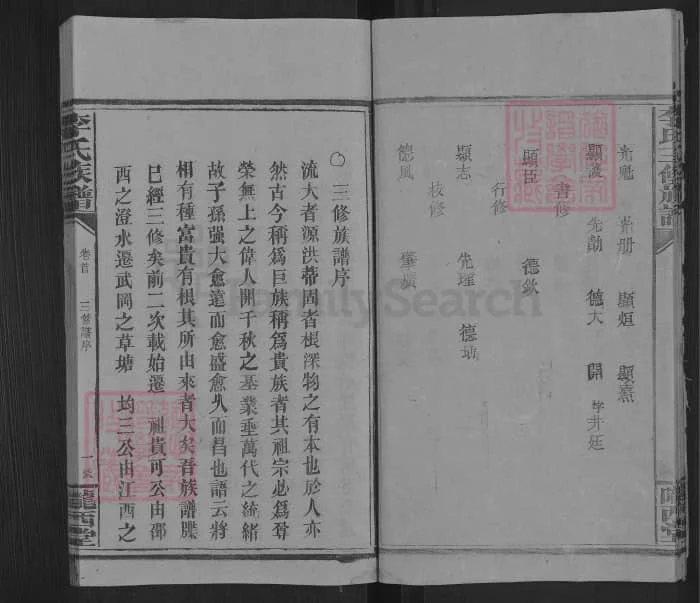 光魁 光册 顯烜 顯熹
顯謨 先勛 德大 開 字井廷
書修
顯臣 德欽
行修
顯志 先瑾 德埔
校修
德風 肇廣
李氏三修族譜
西堂
〇三修族譜序
流大者源洪蒂固者根深物之有本也於人亦
然古今稱爲巨族稱爲貴族者其祖宗必爲尊
榮無上之偉人開千秋之基業垂萬代之統緒
故子孫强大愈遠而愈盛愈久而昌也語云將
相有種富貴有根其所由來者大矣吾族譜牒
巳經三修矣前二次載始遷 祖貴可公由邵
西之澄水遷武岡之草塘 均三公由江西之
李氏族譜
卷首 三修譜序
一
隴西堂
FamilySearch